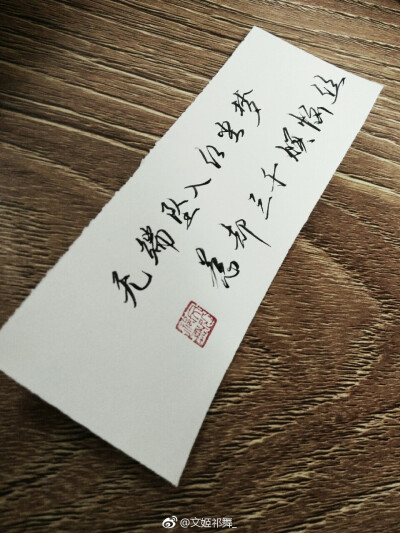 无端坠入红尘梦
惹却三千烦恼丝
@文姬祁舞_